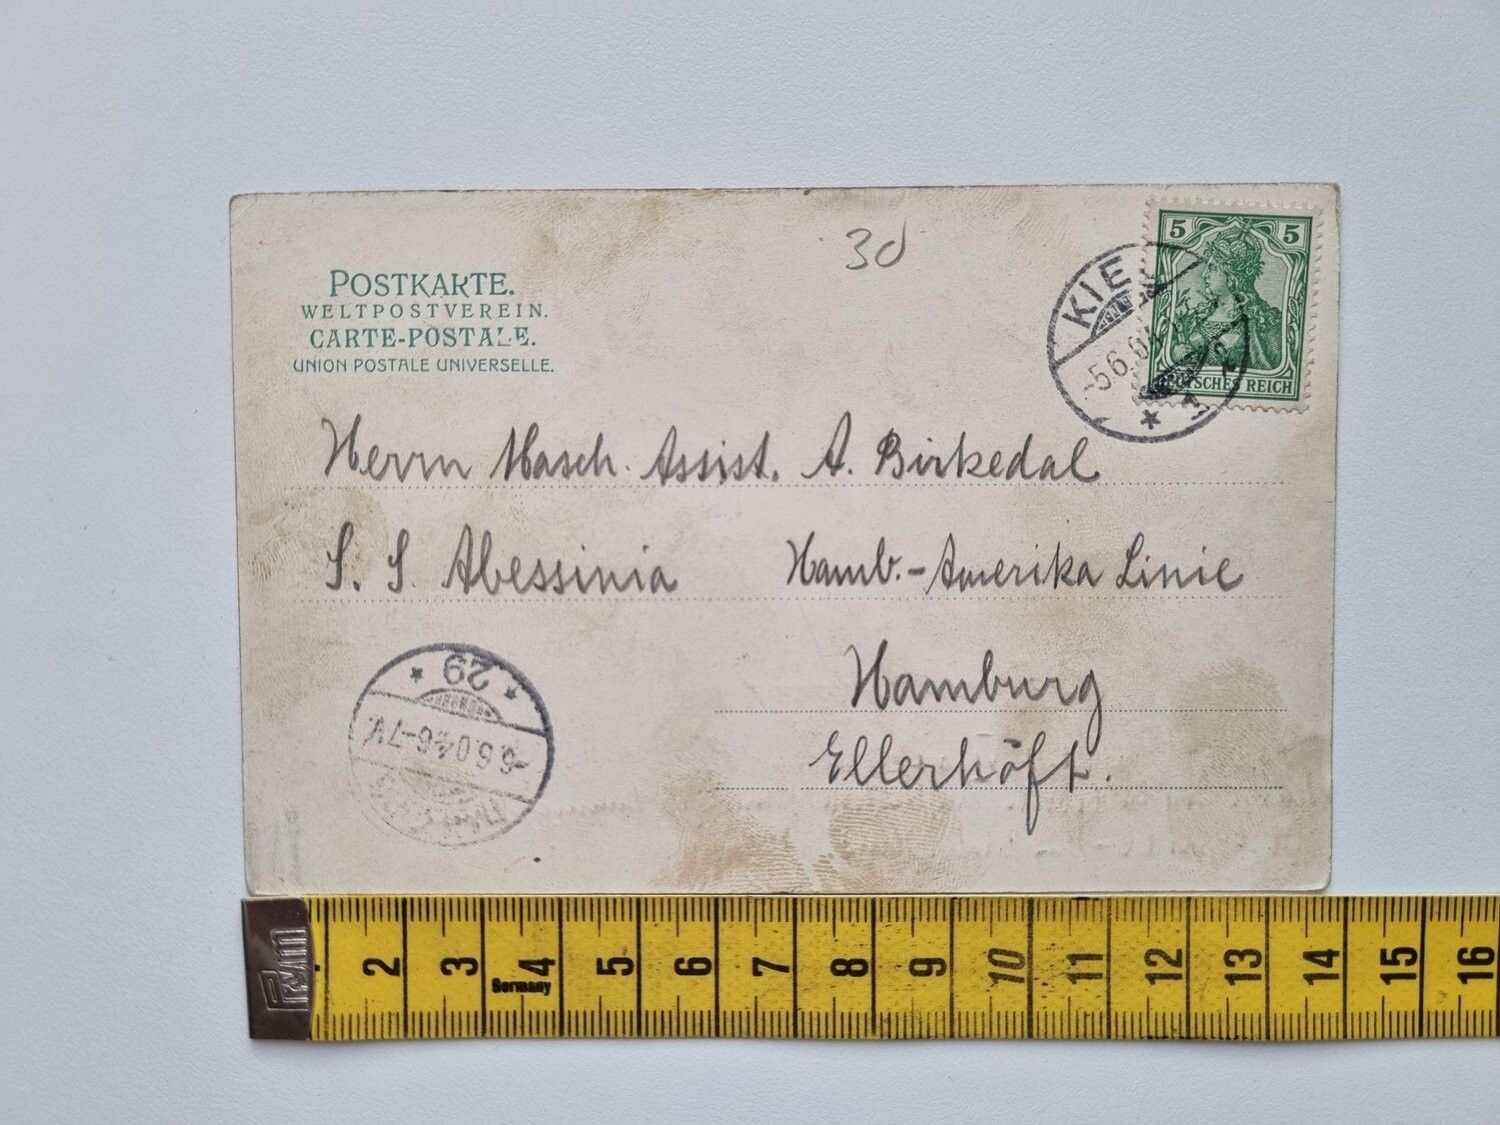 30
POSTKARTE.
WELTPOSTVEREIN.
CARTE-POSTALE.
UNION POSTALE UNIVERSELLE.
5 5
DEUTSCHES REICH
KIEL
-5.6.04
Herrn Masch. Assist. A. Birkedal
S. S. Abessinia Hamb.-Amerika Linie
Hamburg
Ellerhöft.
* 29 *
-6.6.04.6-7V.
2 3 4 5 6 7 8 9 10 11 12 13 14 15 16
Germany